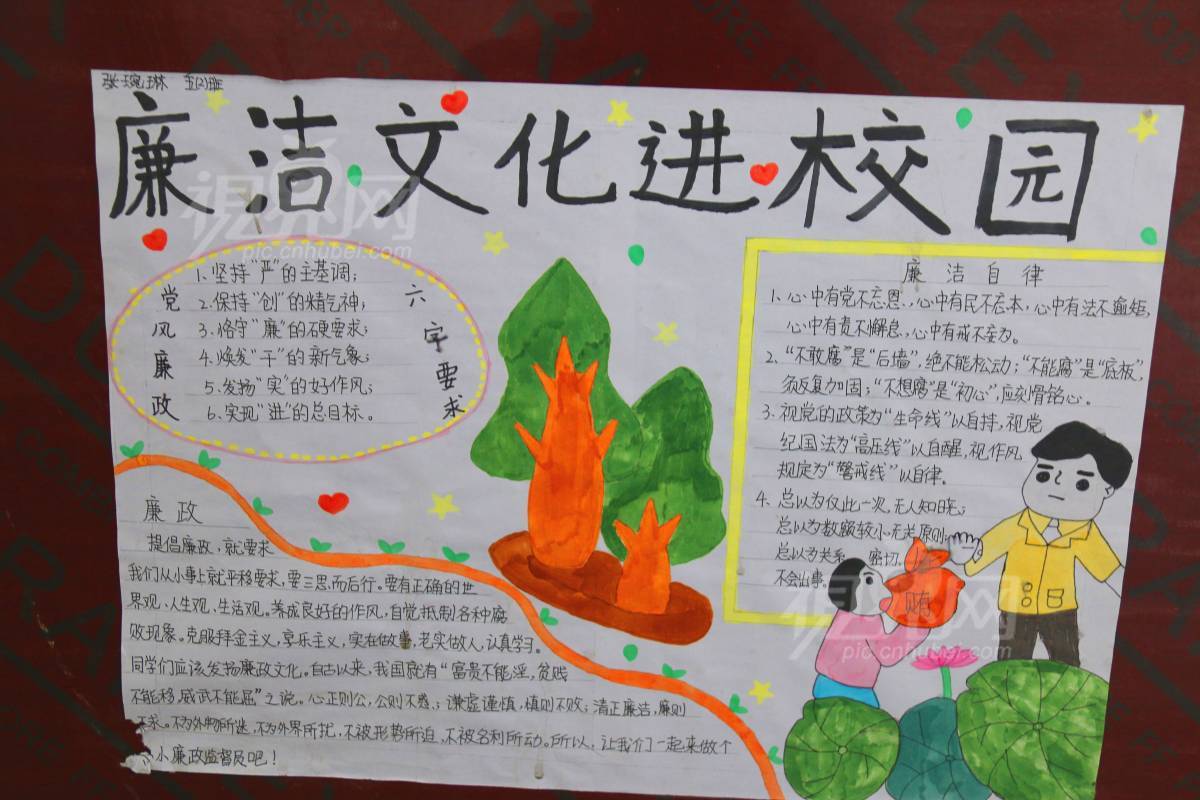 张琬琳 五(2)班
廉洁文化进校园
党风廉政
1. 坚持“严”的主基调；
2. 保持“创”的精气神；
3. 恪守“廉”的硬要求；
4. 焕发“干”的新气象；
5. 发扬“实”的好作风；
6. 实现“进”的总目标。
六字要求
廉政
提倡廉政，就要求
我们从小事上就平移要求，要三思而后行。要有正确的世
界观、人生观、生活观。养成良好的作风，自觉抵制各种腐
败现象。克服拜金主义，享乐主义，实在做，老实做人，认真学习。
同学们应该发扬廉政文化。自古以来，我国就有“富贵不能淫，贫贱
不能移，威武不能屈”之说。心正则公，公则不惑；谦虚谨慎，慎则不败；清正廉洁，廉则
不求。不为外物所迷，不为外界所扰，不被形势所迫，不被名利所动。所以，让我们一起来做个
小廉政监督员吧！
廉洁自律
1、心中有党不忘恩，心中有民不忘本，心中有法不逾矩，
心中有责不懈怠，心中有戒不妄为。
2、“不敢腐”是“后墙”，绝不能松动；“不能腐”是“底板”，
须反复加固；“不想腐”是“初心”，应刻骨铭心。
3、视党的政策为“生命线”以自持，视党
纪国法为“高压线”以自醒，视作风
规定为“警戒线”以自律。
4、总以为仅此一次，无人知晓；
总以为数额较小，无关原则
总以为关系 密切，
不会出事。
贿
视界网
pic.cnhubei.com
视界网
pic.cnhubei.com